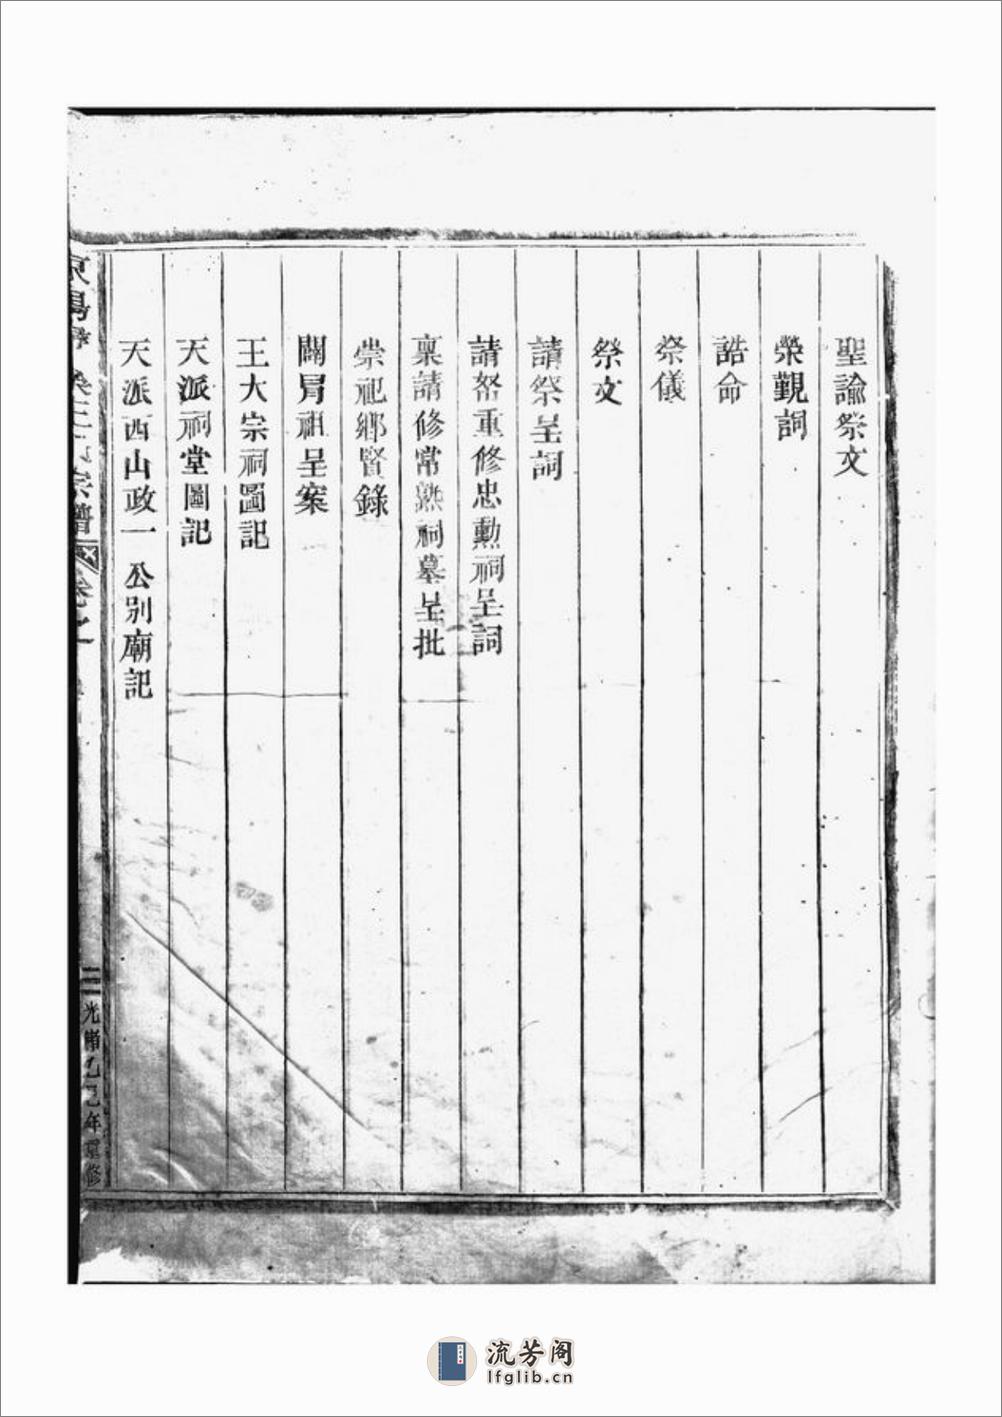 聖諭祭文
榮覲詞
誥命
祭儀
祭文
請祭呈詞
請帑重修忠勳祠呈詞
稟請修常熟祠墓呈批
崇祀鄉賢錄
闢冐祖呈案
王大宗祠圖記
天派祠堂圖記
天派西山政一 公別廟記
宗譜
光緒乙巳年重修
流芳阁
lfglib.cn